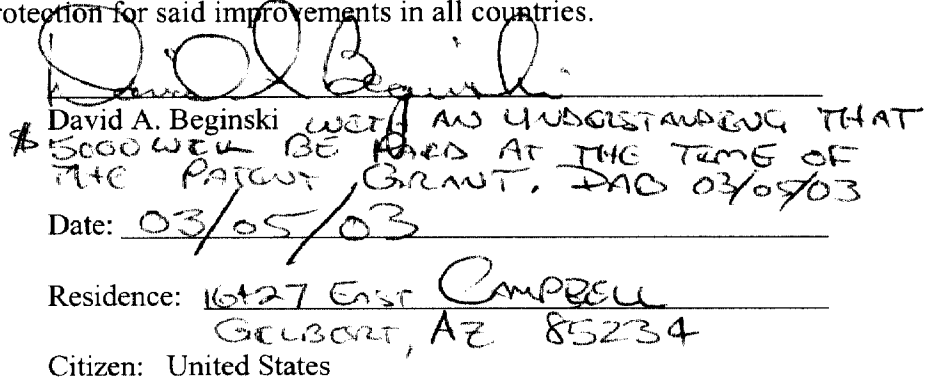 rotection for said improvements in all countries.
David A. Beginski
David A. Beginski WITH AN UNDERSTANDING THAT
$5000 WILL BE PAID AT THE TIME OF
THE PATENT GRANT. DAB 03/05/03
Date: 03/05/03
Residence: 16427 EAST CAMPBELL
GILBERT, AZ 85234
Citizen: United States